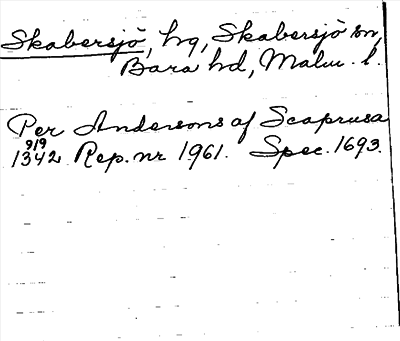 Skabersjö, hg, Skabersjö sn,
Bara hd, Malm. l.
Per Andersons af Scaprusa
919
1342 Rep. nr 1961. Spec. 1693.